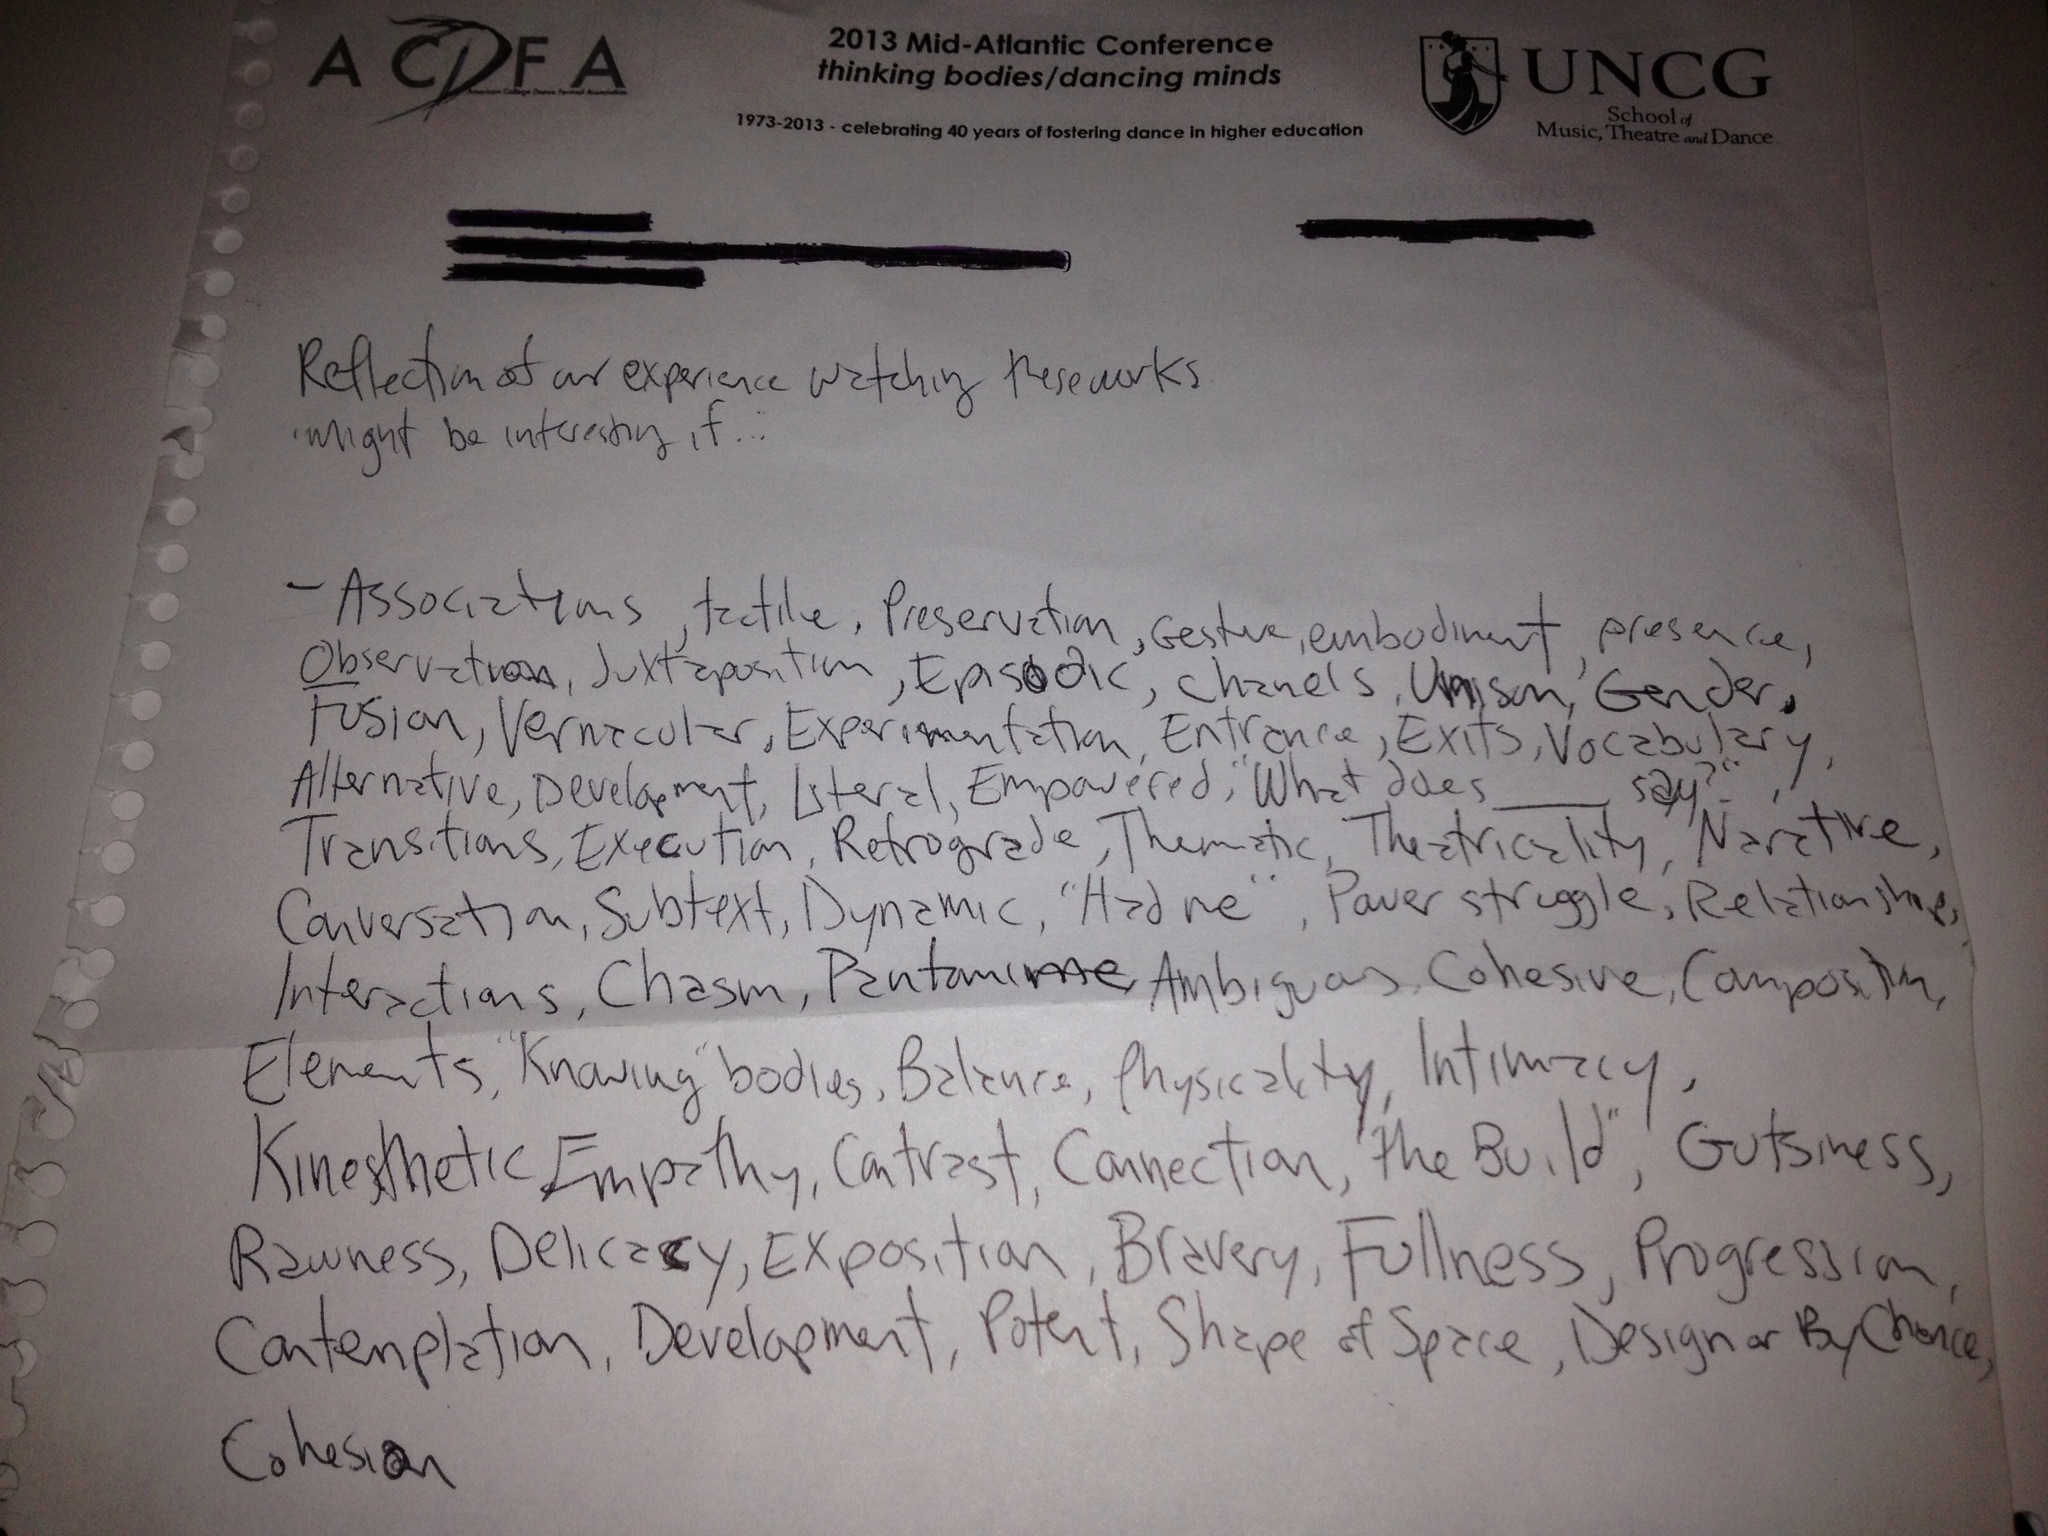 ACDFA
American College Dance Festival Association
2013 Mid-Atlantic Conference
thinking bodies/dancing minds
1973-2013 - celebrating 40 years of fostering dance in higher education
UNCG
School of
Music, Theatre and Dance
Reflection of our experience watching these works
might be interesting if...
- Associations, tactile, Preservation, Gesture, embodiment, presence,
Observation, Juxtaposition, Episodic, Chanels, Unison, Gender,
Fusion, Vernacular, Experimentation, Entrance, Exits, Vocabulary,
Alternative, Development, Literal, Empowered, "What does ____ say?",
Transitions, Execution, Retrograde, Thematic, Theatricality, Narative,
Conversation, Subtext, Dynamic, "Had me", Power struggle, Relationships,
Interactions, Chasm, Pantomime, Ambiguous, Cohesive, Composition,
Elements, "Knowing" bodies, Balance, Physicality, Intimacy,
Kinesthetic Empathy, Contrast, Connection, "The Build", Gutsiness,
Rawness, Delicacy, Exposition, Bravery, Fullness, Progression,
Contemplation, Development, Potent, Shape of Space, Design or By Chance,
Cohesion